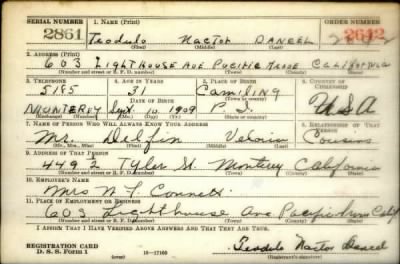 SERIAL NUMBER 1. NAME (Print) ORDER NUMBER
2861 Teodulo Nactor DANEEL 2642
(First) (Middle) (Last)
2. ADDRESS (Print)
603 LIGHTHOUSE AVE PACIFIC GROVE CALIFORNIA
(Number and street or R. F. D. number) (Town) (County) (State)
3. TELEPHONE 4. AGE IN YEARS 5. PLACE OF BIRTH 6. COUNTRY OF CITIZENSHIP
5185 31 Camiling
DATE OF BIRTH U.S.A
MONTEREY 10 1909 P.I.
(Exchange) (Number) (Mo.) (Day) (Yr.) (State or country)
7. NAME OF PERSON WHO WILL ALWAYS KNOW YOUR ADDRESS 8. RELATIONSHIP OF THAT PERSON
Mr. Delfin Cousins
(Mr., Mrs., Miss) (First) (Middle) (Last)
9. ADDRESS OF THAT PERSON
449 2 Tyler St. Monterey California
(Number and street or R. F. D. number) (Town) (County) (State)
10. EMPLOYER'S NAME
Mrs
11. PLACE OF EMPLOYMENT OR BUSINESS
603 Lighthouse Ave Pacific Grove Calif
(Number and street or R. F. D. number) (Town) (County) (State)
I AFFIRM THAT I HAVE VERIFIED ABOVE ANSWERS AND THAT THEY ARE TRUE.
REGISTRATION CARD
D. S. S. Form 1 16-17105 Teodulo Nactor Daneel
(Registrant's signature)